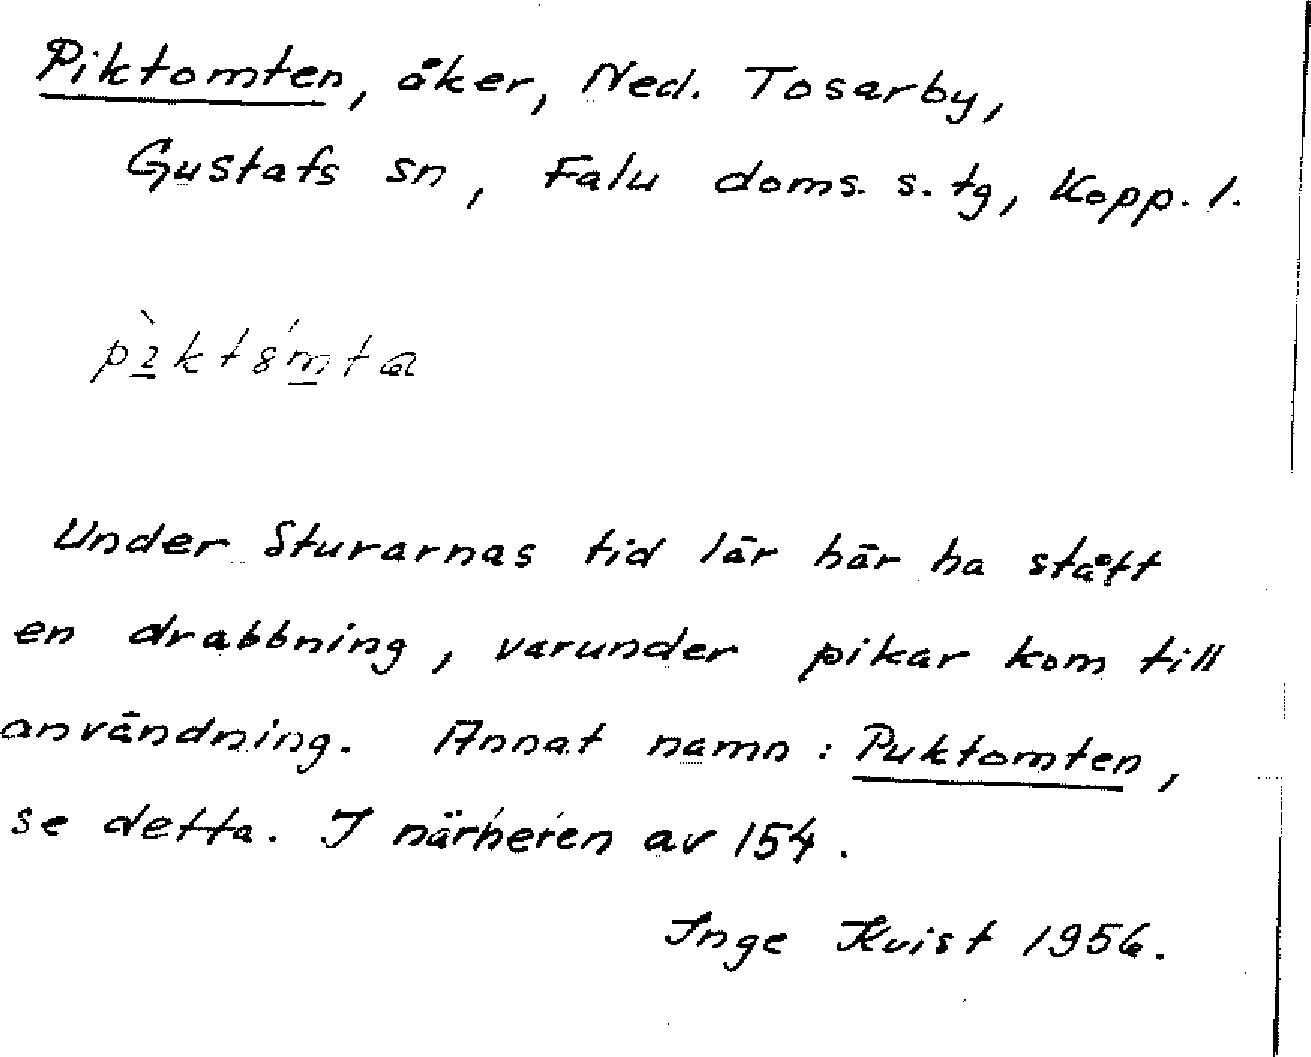 Piktomten, åker, Ned. Tosarby,
Gustafs sn, Falu doms. s. tg, Kopp. l.
Under Sturarnas tid lär här ha stått
en drabbning, varunder pikar kom till
användning. Annat namn: Puktomten,
se detta. I närheten av 154.
Inge Kvist 1956.